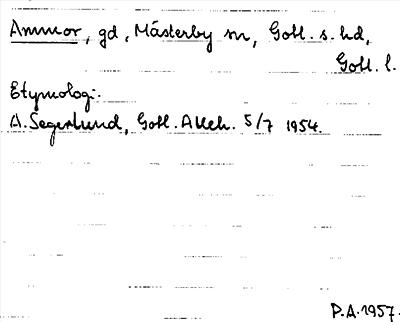 Ammor, gd, Mästerby sn, Gotl. s. hd,
Gotl. l.
Etymologi:
A. Segerlund, Gotl. Alleh. 5/7 1954.
P.A. 1957.